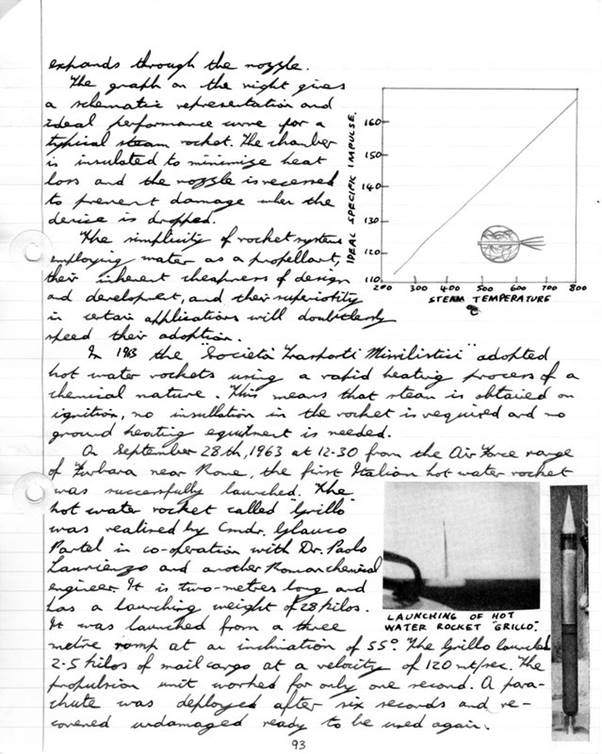 expands through the nozzle.
The graph on the right gives
a schematic representation and
ideal performance curve for a
typical steam rocket. The chamber
is insulated to minimize heat
loss and the nozzle is recessed
to prevent damage when the
device is dropped.
The simplicity of rocket systems
employing water as a propellant,
their inherent cheapness of design
and development, and their superiority
in certain applications will doubtlessly
speed their adoption.
IDEAL SPECIFIC IMPULSE.
160
150
140
130
120
110
200 300 400 500 600 700 800
STEAM TEMPERATURE
°C
In 1963 the "Società Trasporti Missilistici" adopted
hot water rockets using a rapid heating process of a
chemical nature. This means that steam is obtained on
ignition, no insullation in the rocket is required and no
ground heating equitment is needed.
On September 28th, 1963 at 12-30 from the Air Force range
of Furbara near Rome, the first Italian hot water rocket
was successfully launched. The
hot water rocket called "Grillo"
was realised by Cmdr. Glauco
Partel in co-operation with Dr. Paolo
and another Roman chemical
engineer. It is two-metres long and
has a launching weight of 28 kilos.
It was launched from a three
metre ramp at an inclination of 55°. The Grillo launched
2-5 kilos of mail cargo at a velocity of 120 mt/sec. The
propulsion unit worked for only one second. A para-
chute was deployed after six seconds and re-
covered undamaged ready to be used again.
LAUNCHING OF HOT
WATER ROCKET "GRILLO".
93